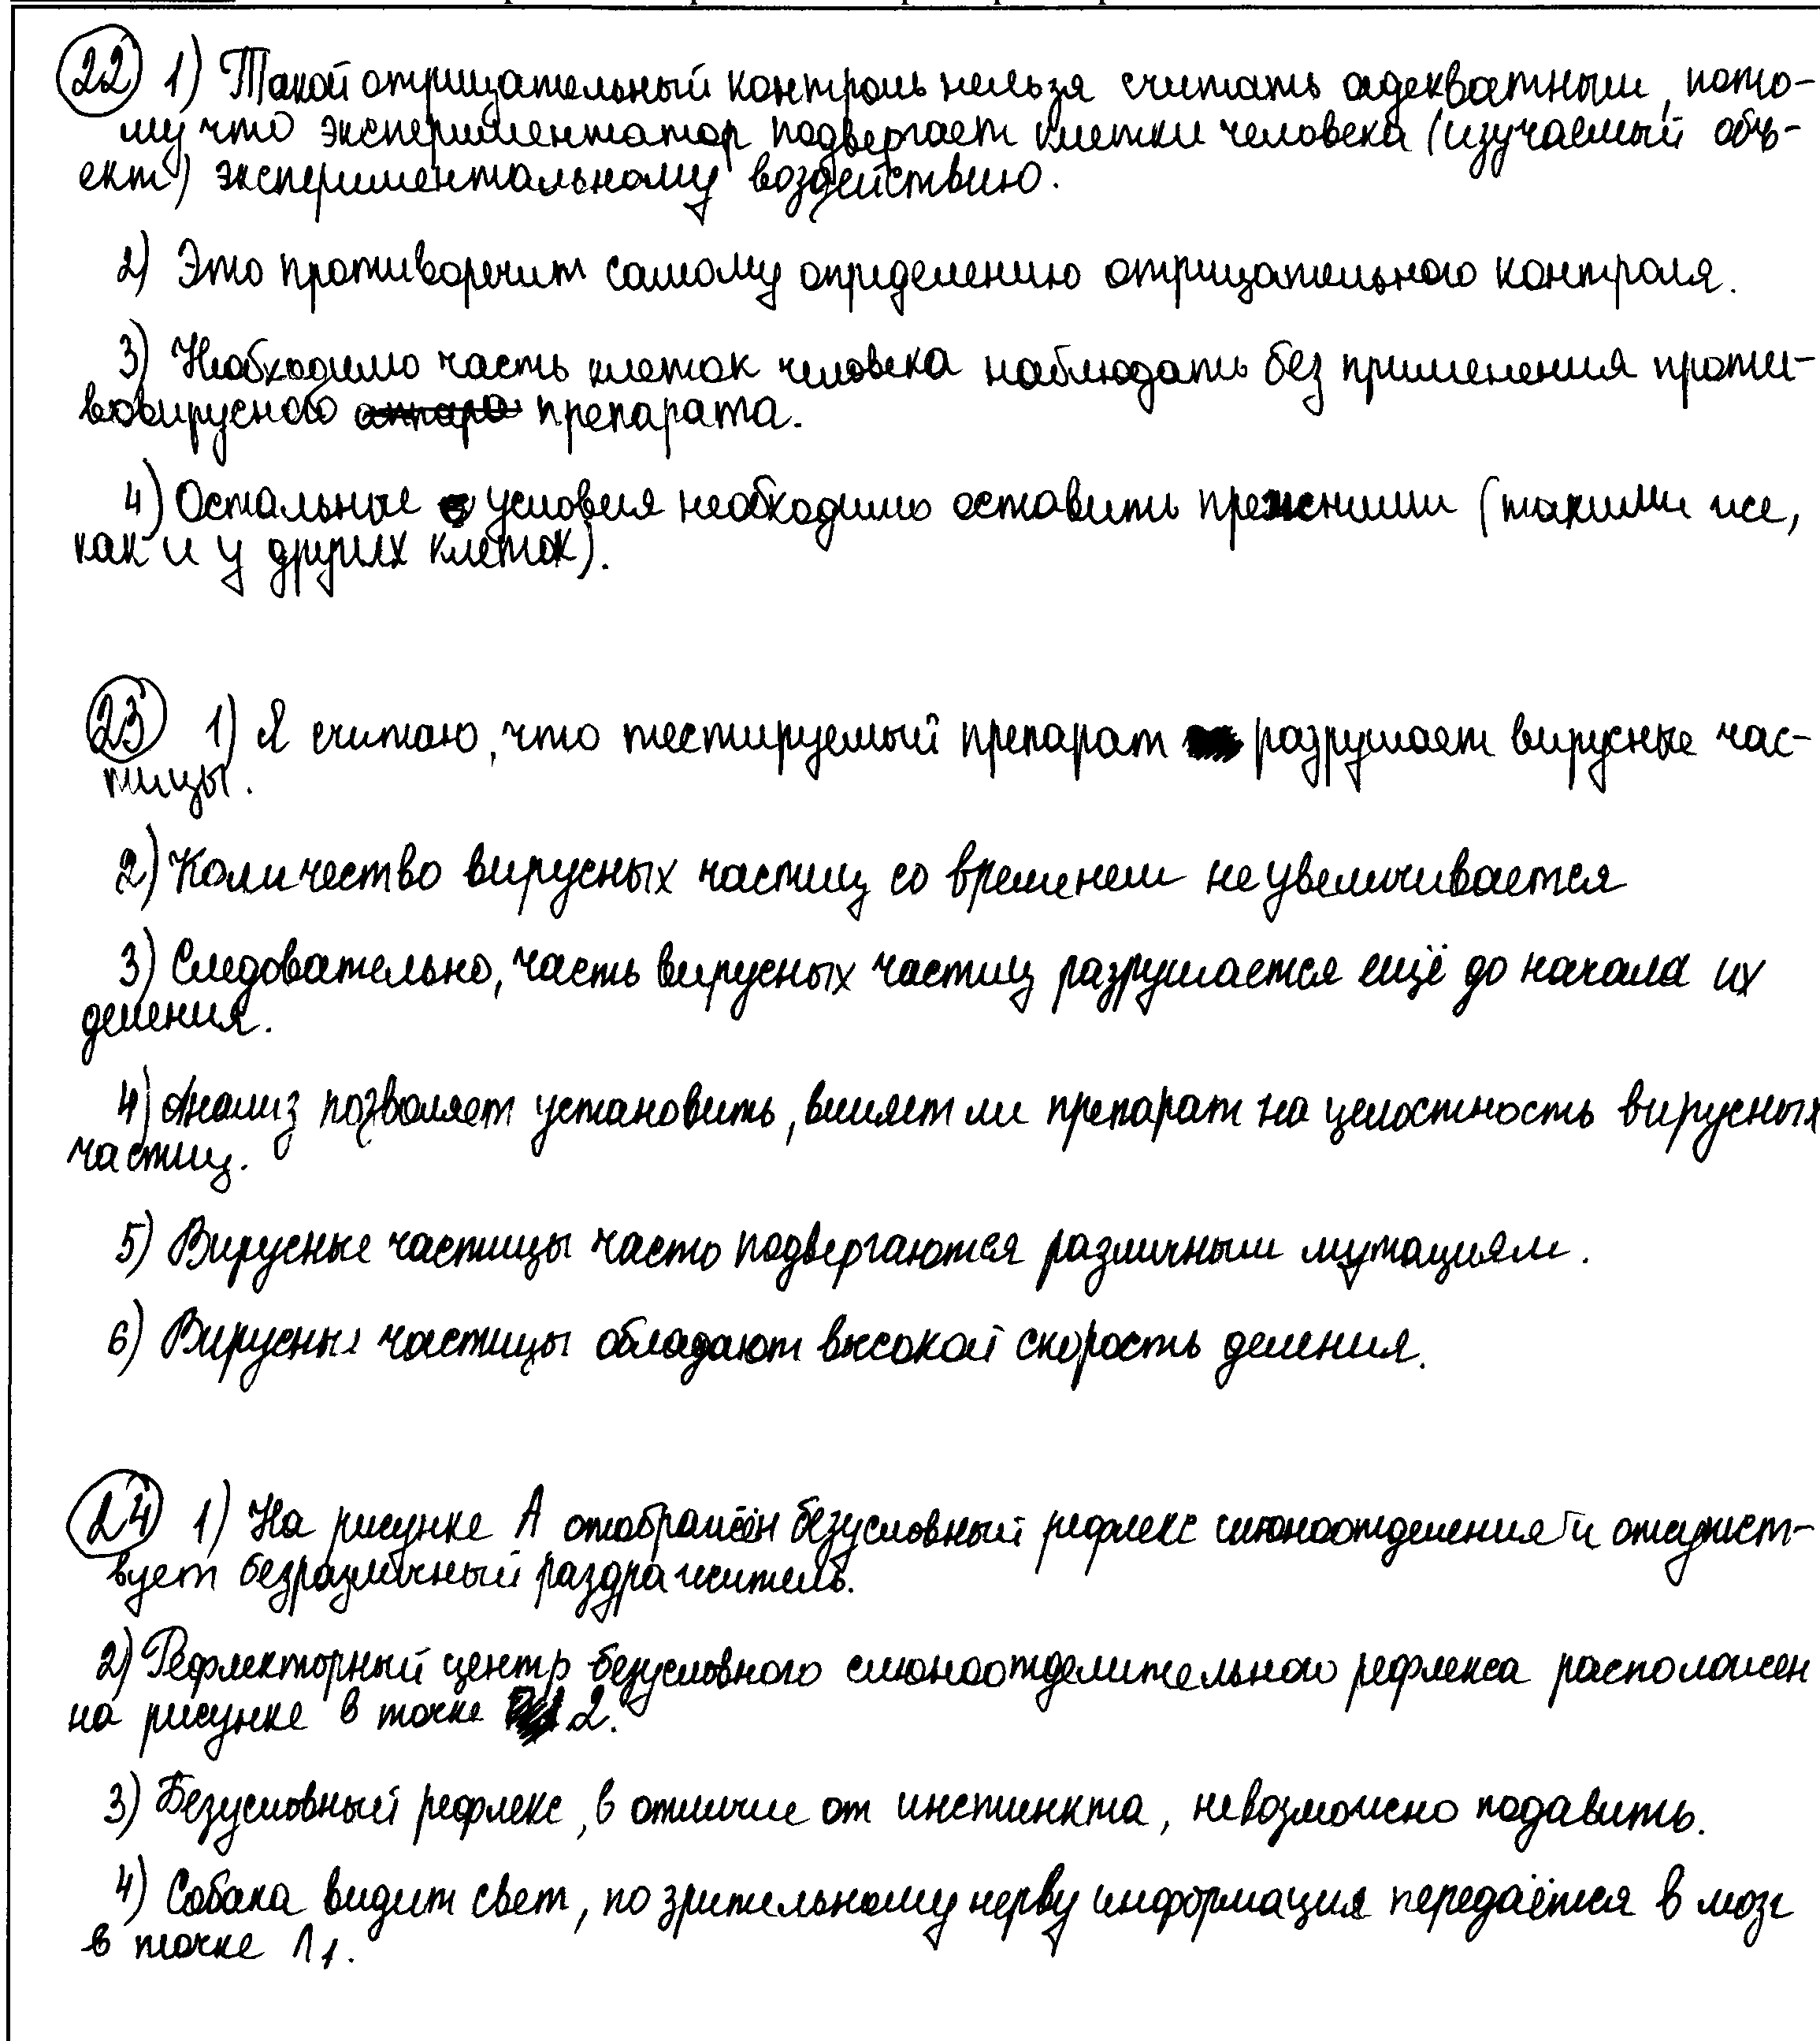 22 1) Такой отрицательный контроль нельзя считать адекватным, пото-
му что экспериментатор подвергает клетки человека (изучаемый объ-
ект) экспериментальному воздействию.
2) Это противоречит самому определению отрицательного контроля.
3) Необходимо часть клеток человека наблюдать без применения проти-
вовирусного препарата.
4) Остальные условия необходимо оставить прежними (такими же,
как и у других клеток).
23 1) Я считаю, что тестируемый препарат разрушает вирусные час-
тицы.
2) Количество вирусных частиц со временем не увеличивается
3) Следовательно, часть вирусных частиц разрушается ещё до начала их
деления.
4) Анализ позволяет установить, влияет ли препарат на целостность вирусных
частиц.
5) Вирусные частицы часто подвергаются различным мутациям.
6) Вирусные частицы обладают высокой скорость деления.
24 1) На рисунке А отображён безусловный рефлекс слюноотделения и отсутст-
вует безразличный раздражитель.
2) Рефлекторный центр безусловного слюноотделительного рефлекса расположен
на рисунке в точке 2.
3) Безусловный рефлекс, в отличие от инстинкта, невозможно подавить.
4) Собака видит свет, по зрительному нерву информация передаётся в мозг
в точке 1.